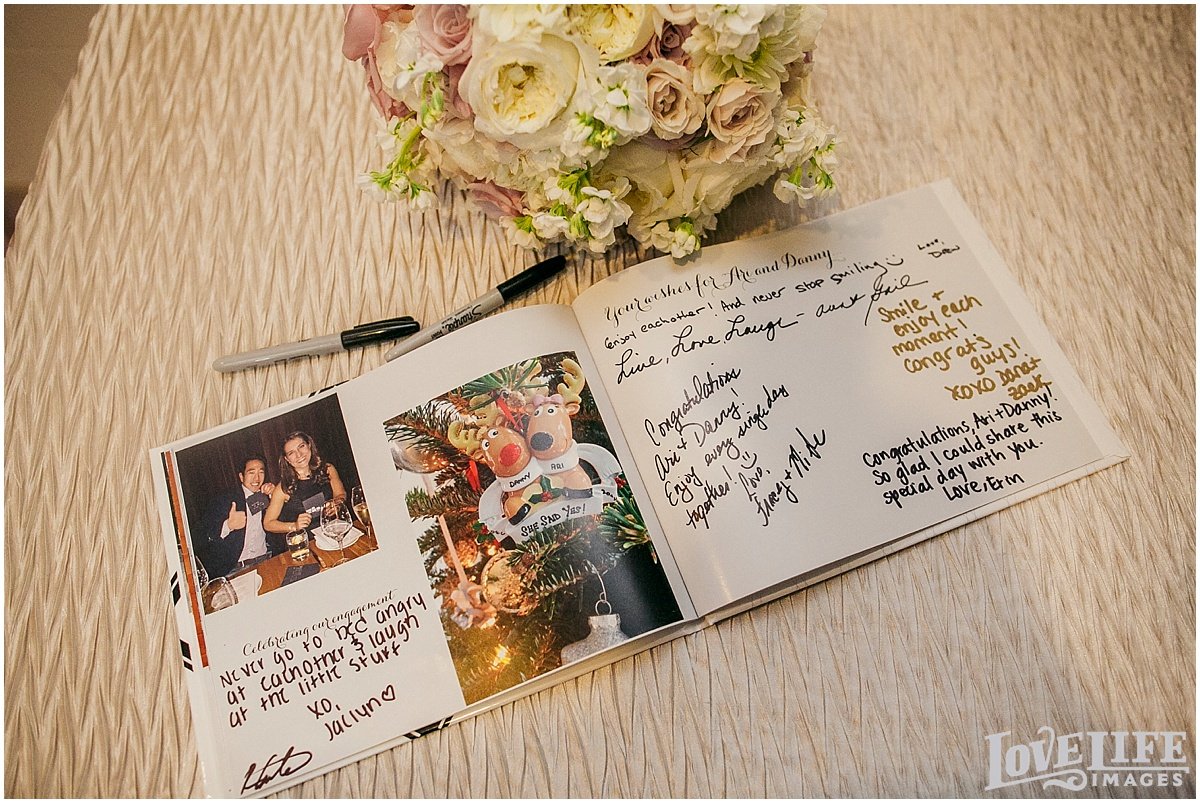 Sharpie
Celebrating our engagement
Never go to bed angry
at eachother & laugh
at the little stuff
xo,
Jaclyn ♡
DANNY
ARI
SHE SAID YES!
Your wishes for Ari and Danny
Enjoy eachother! And never stop smiling ☺
Love,
Drew
Live, Love, Laugh - Aunt Gail
Smile +
enjoy each
moment!
Congrats
guys!
XOXO Dana +
Zach
Congratulations
Ari + Danny!
Enjoy every single day
together! ☺
Love,
+ Mike
Congratulations, Ari + Danny!
So glad I could share this
special day with you.
Love, Erin
LOVE LIFE
IMAGES